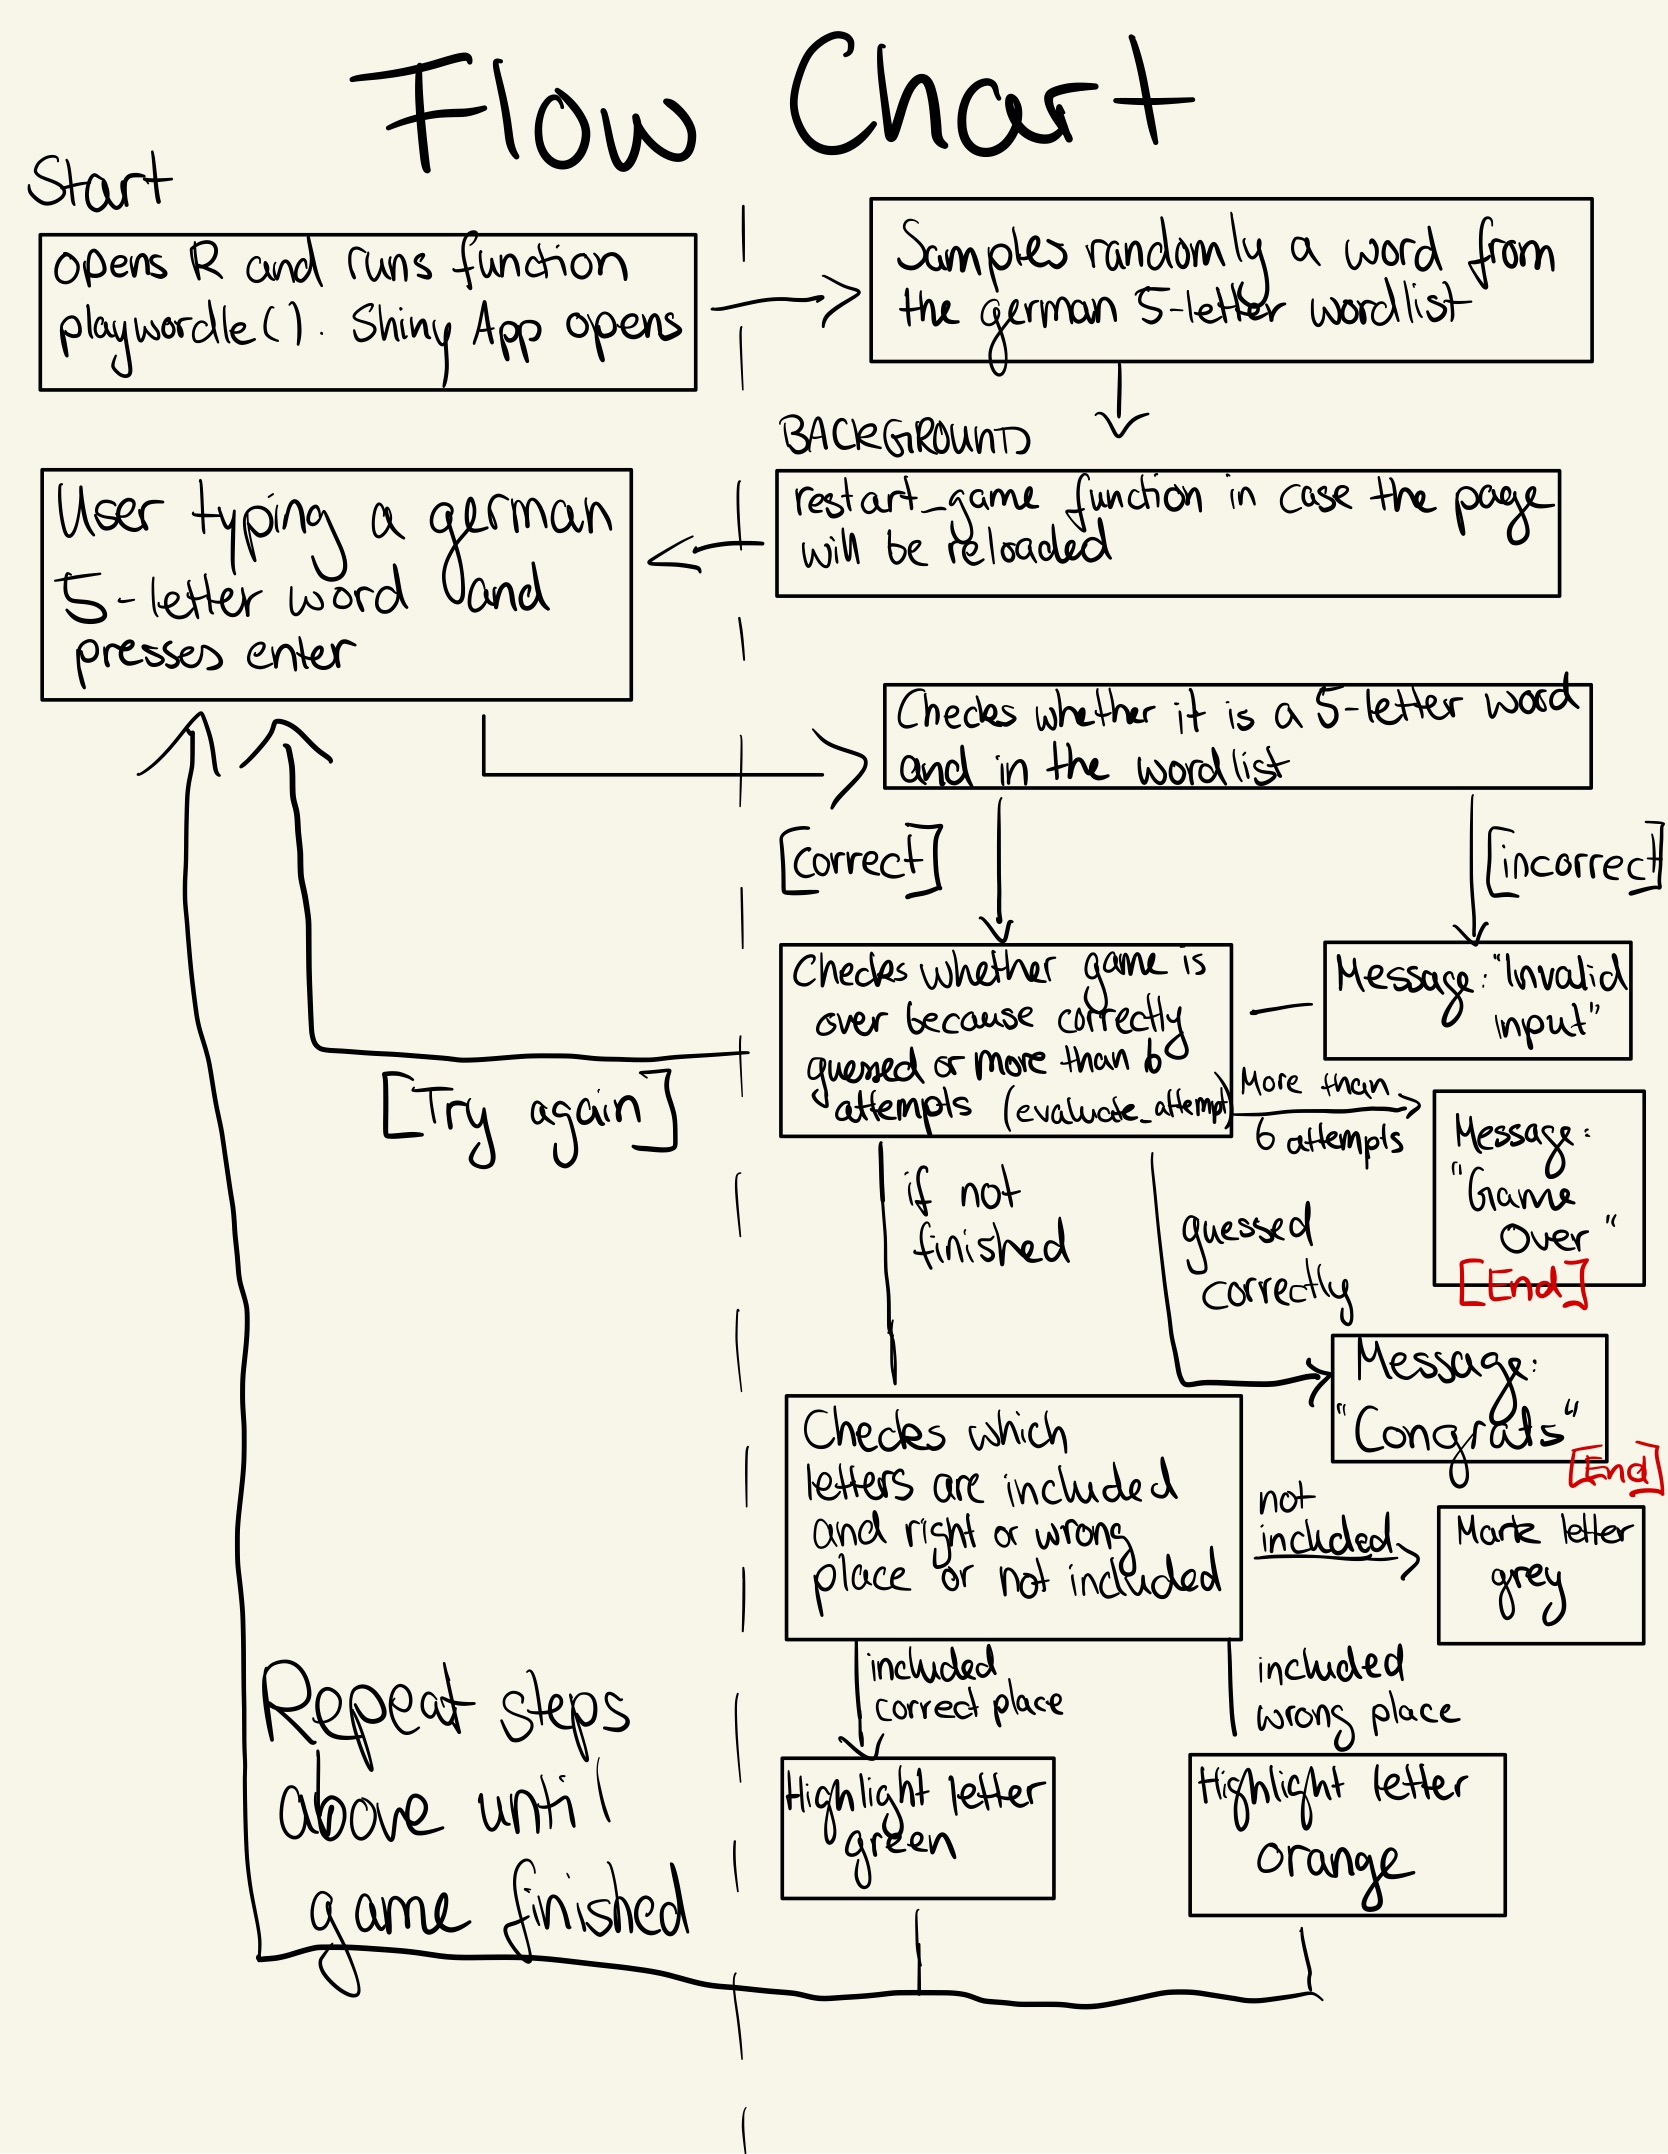 Flow Chart
Start
opens R and runs function
playwordle(). Shiny App opens
Samples randomly a word from
the german 5-letter wordlist
BACKGROUND
restart_game function in case the page
will be reloaded
User typing a german
5-letter word and
presses enter
Checks whether it is a 5-letter word
and in the wordlist
[correct]
[incorrect]
Checks whether game is
over because correctly
guessed or more than 6
attempts (evaluate_attempt)
Message: "Invalid
input"
[Try again]
More than
6 attempts
Message:
"Game
Over"
[End]
if not
finished
guessed
correctly
Message:
"Congrats"
[End]
Checks which
letters are included
and right or wrong
place or not included
not
included
Mark letter
grey
included
correct place
included
wrong place
Highlight letter
green
Highlight letter
orange
Repeat steps
above until
game finished